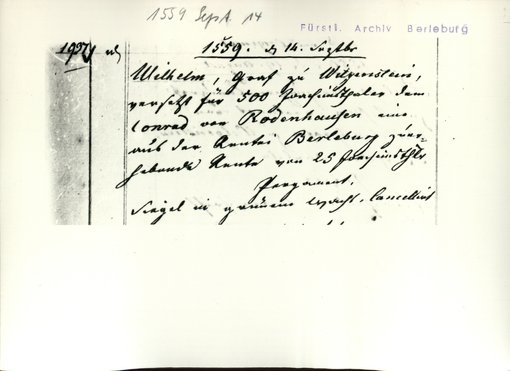 1559 Sept. 14
Fürstl. Archiv Berleburg
1937
1559. d 14. Septbr
Wilhelm, Graf zu Witgenstein,
versetzt für 500 Joachimsthaler dem
Conrad von Rodenhausen eine
aus der Rentei Berleburg zu er-
hebende Rente von 25 Joachimsthlr
Pergament.
Siegel in grünem Wachs. Cancellirt